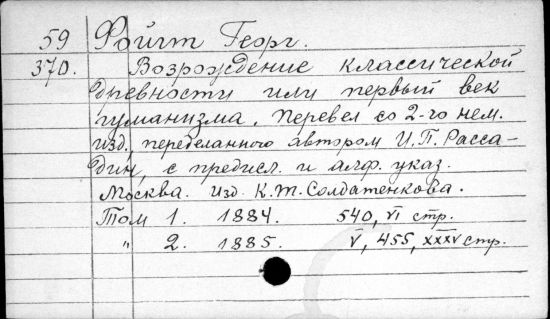 59 Фойгт Георг.
370. Возрождение классической
древности или первый век
гуманизма. Перевел со 2-го нем.
изд., переделанного автором И. П. Расса-
дин, с предисл. и алф. указ.
Москва. Изд. К. Т. Солдатенкова.
Том 1. 1884. 540, VI стр.
" 2. 1885. V, 455, XXXV стр.